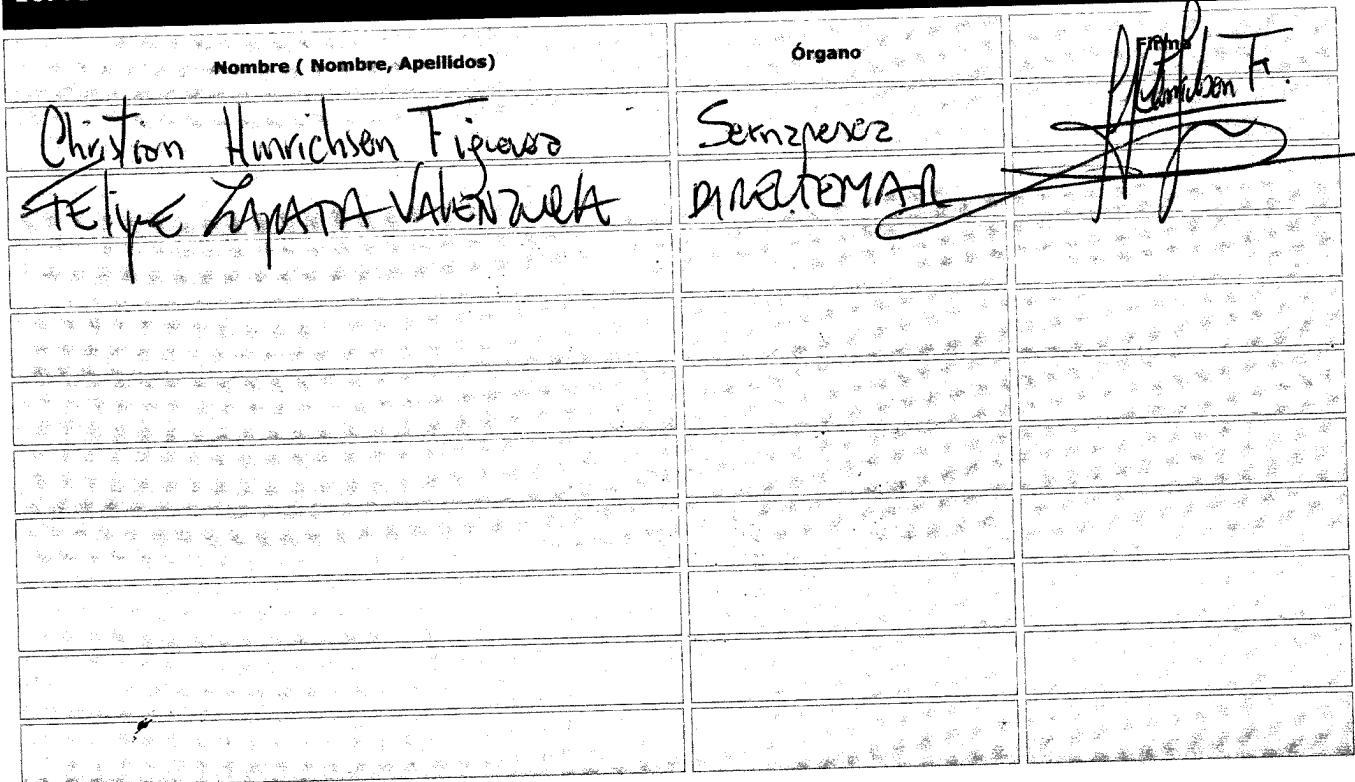 Nombre ( Nombre, Apellidos) Órgano Firma
Christian Hinrichsen Figueroa Sernapesca
FELIPE ZAPATA VALENZUELA DIRECTEMAR